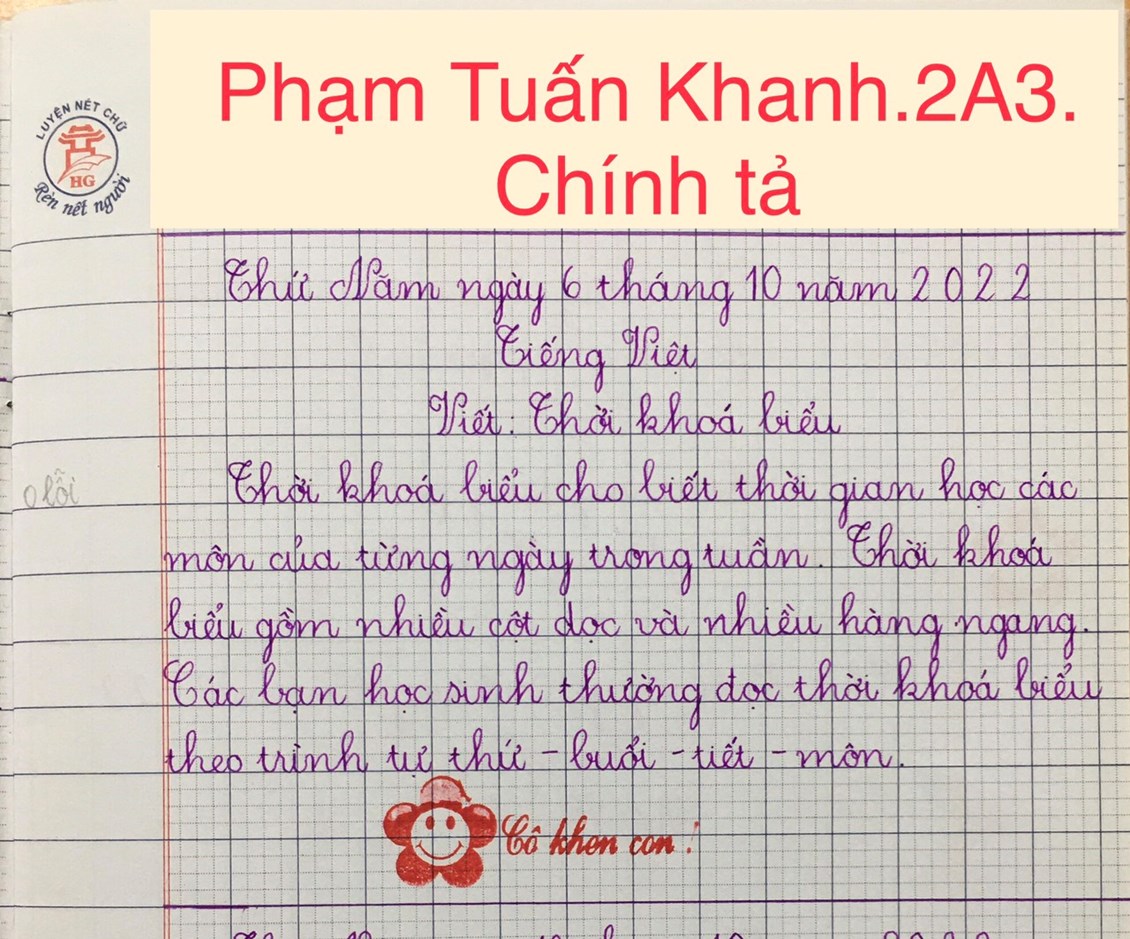 Phạm Tuấn Khanh.2A3.
Chính tả
LUYỆN NÉT CHỮ
HG
Rèn nết người
Thứ Năm ngày 6 tháng 10 năm 2022
Tiếng Việt
Viết: Thời khoá biểu
0 lỗi
Thời khoá biểu cho biết thời gian học các
môn của từng ngày trong tuần. Thời khoá
biểu gồm nhiều cột dọc và nhiều hàng ngang.
Các bạn học sinh thường đọc thời khoá biểu
theo trình tự thứ - buổi - tiết - môn.
Cô khen con!